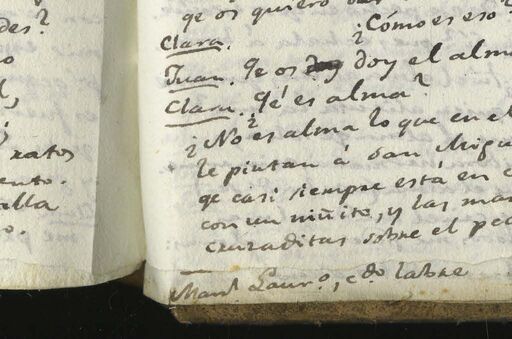 des?
o
l,
ratos
ento.
alla
o.
qe os quiero dar
¿Cómo es eso?
Clara.
Juan. Qe os doy el alma
Clara. Qé es alma?
¿No es alma lo que en el
le pintan á San Migu
qe casi siempre está en c
con un niñito, y las man
cruzaditas sobre el pec